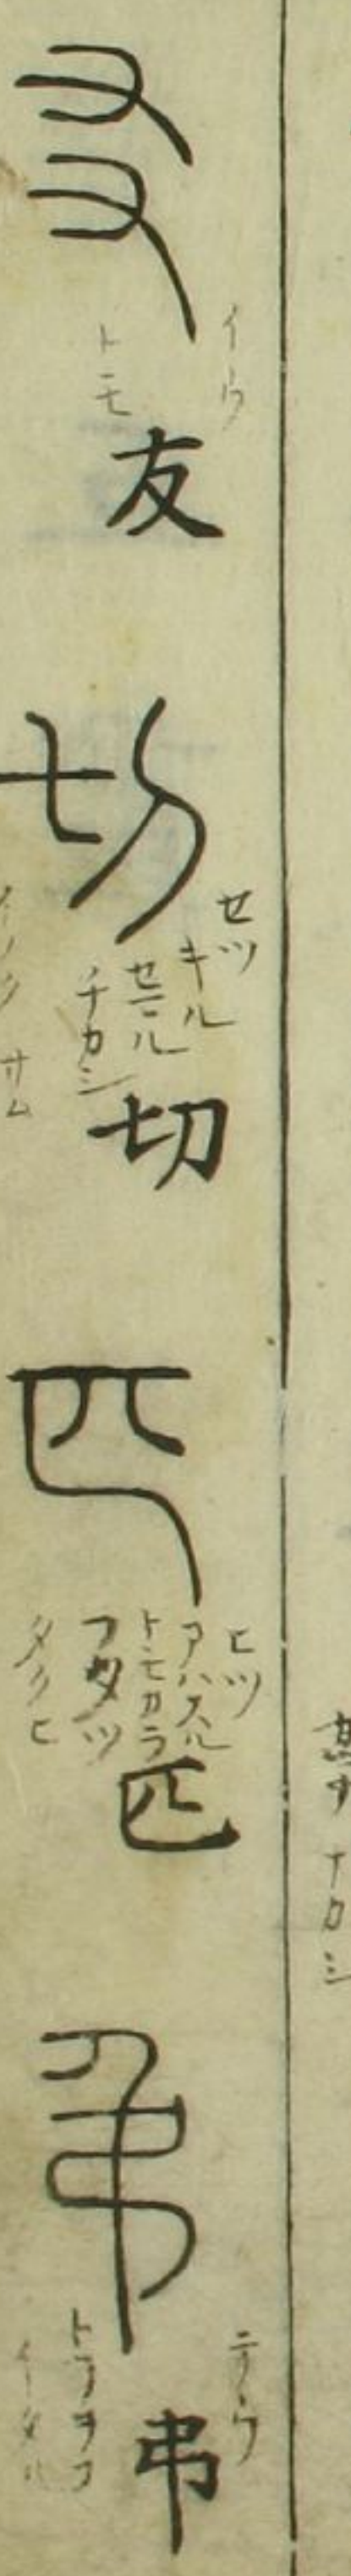 友
イウ
トモ
切
セツ
キル
チカシ
匹
ヒツ
アハスル
トモカラ
フタツ
タクヒ
弔
テウ
トフラフ
イタル
ナカシ